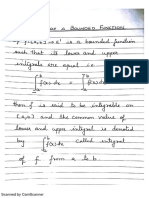 OF A BOUNDED FUNCTION
If f:[a,b]→R is a bounded function
such that its lower and upper
integrals are equal i.e.
∫ f(x)dx = ∫ f(x)dx
then f is said to be integrable on
[a,b] and the common value of
lower and upper integral is denoted
by ∫ f(x)dx called integral
of f from a to b.
Scanned by CamScanner